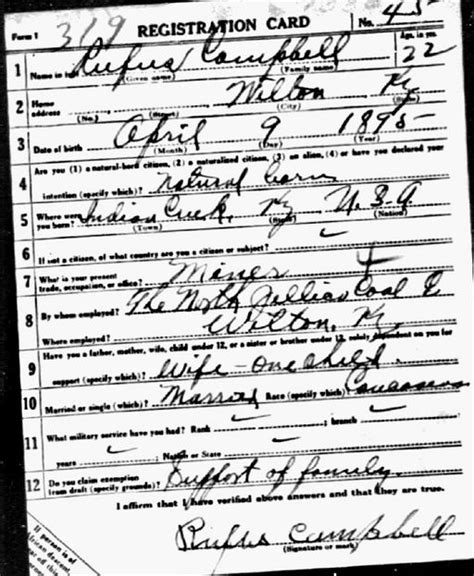 Form 1 319 REGISTRATION CARD No. 45
Age, in yrs.
1 Rufus Campbell 22
Name in full (Given name) (Family name)
2 Home address Wilton Ky
(No.) (Street) (City) (State)
3 Date of birth April 9 1895
(Month) (Day) (Year)
4 Are you (1) a natural-born citizen, (2) a naturalized citizen, (3) an alien, (4) or have you declared your
intention (specify which)? Natural born
5 Where were you born? Indian Creek, Ky U.S.A
(Town) (State) (Nation)
6 If not a citizen, of what country are you a citizen or subject?
7 What is your present trade, occupation, or office? Miner
8 By whom employed? The North Jellico Coal C
Where employed? Wilton, Ky.
9 Have you a father, mother, wife, child under 12, or a sister or brother under 12, solely dependent on you for
support (specify which)? Wife - One child.
10 Married or single (which)? Married Race (specify which)? Caucasian
11 What military service have you had? Rank ; branch
years ; Nation or State
12 Do you claim exemption from draft (specify grounds)? Support of family.
I affirm that I have verified above answers and that they are true.
Rufus Campbell
(Signature or mark)
If person is of
African descent,
tear off this
corner